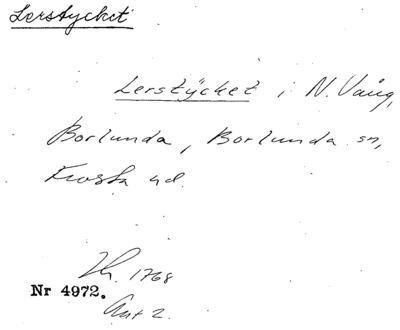 Lerstycket
Lerstycket i N. Vång,
Borlunda, Borlunda sn,
Frosta hd.
1768
Nr 4972.
Akt 2.